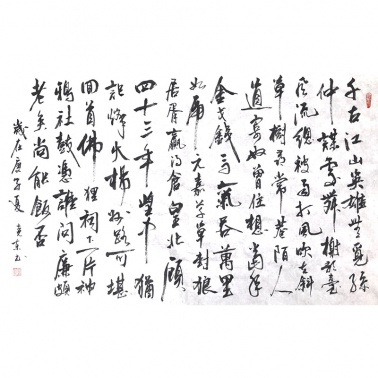 千古江山英雄無覓孫
仲謀處舞榭歌臺
風流總被雨打風吹去斜
草樹尋常巷陌人
道寄奴曾住想當年
金戈鐵馬氣吞萬里
如虎元嘉草草封狼
居胥贏得倉皇北顧
四十三年望中猶
記烽火揚州路可堪
回首佛狸祠下一片神
鴉社鼓憑誰問廉頗
老矣尚能飯否
歲在庚子夏